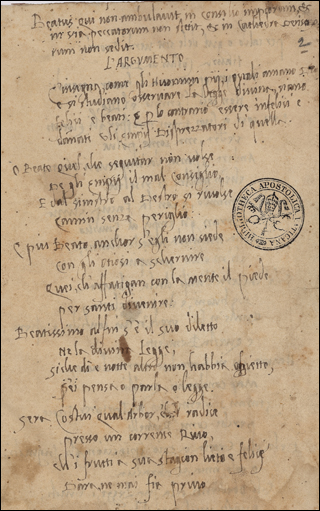 Beatus qui non ambulavit in consilio impiorum, et
in via peccatorum non stetit, & in cathedra
rum non sedit.
2
L'ARGVMENTO
Insegna, come gli huomini pii, i quali amano
e si studiano osservare la legge divina, siano
felici e beati: & p lo contrario essere infelici e
dannati gli empii disprezzatori di quella.
O Beato quel, che seguitar non volse
De gli empii il mal consiglio
E dal sinistro al destro si rivolse
Camin senza periglio
E piu Beato anchor s'egli non siede
con gli otiosi a schernire
Quei, ch'affatigan con la mente il piede
per santi divenire.
Beatissimo al fin s'è il suo diletto
Ne la divina legge,
si che dì e notte altr non habbia obietto,
pensa o parla o legge.
sera Costui qual arbor, radice
presso un corrente Rivo,
Ch'i frutti a sua stagion lieto e felice
Dara, ne mai fia privo
BIBLIOTHECA APOSTOLICA VATICANA